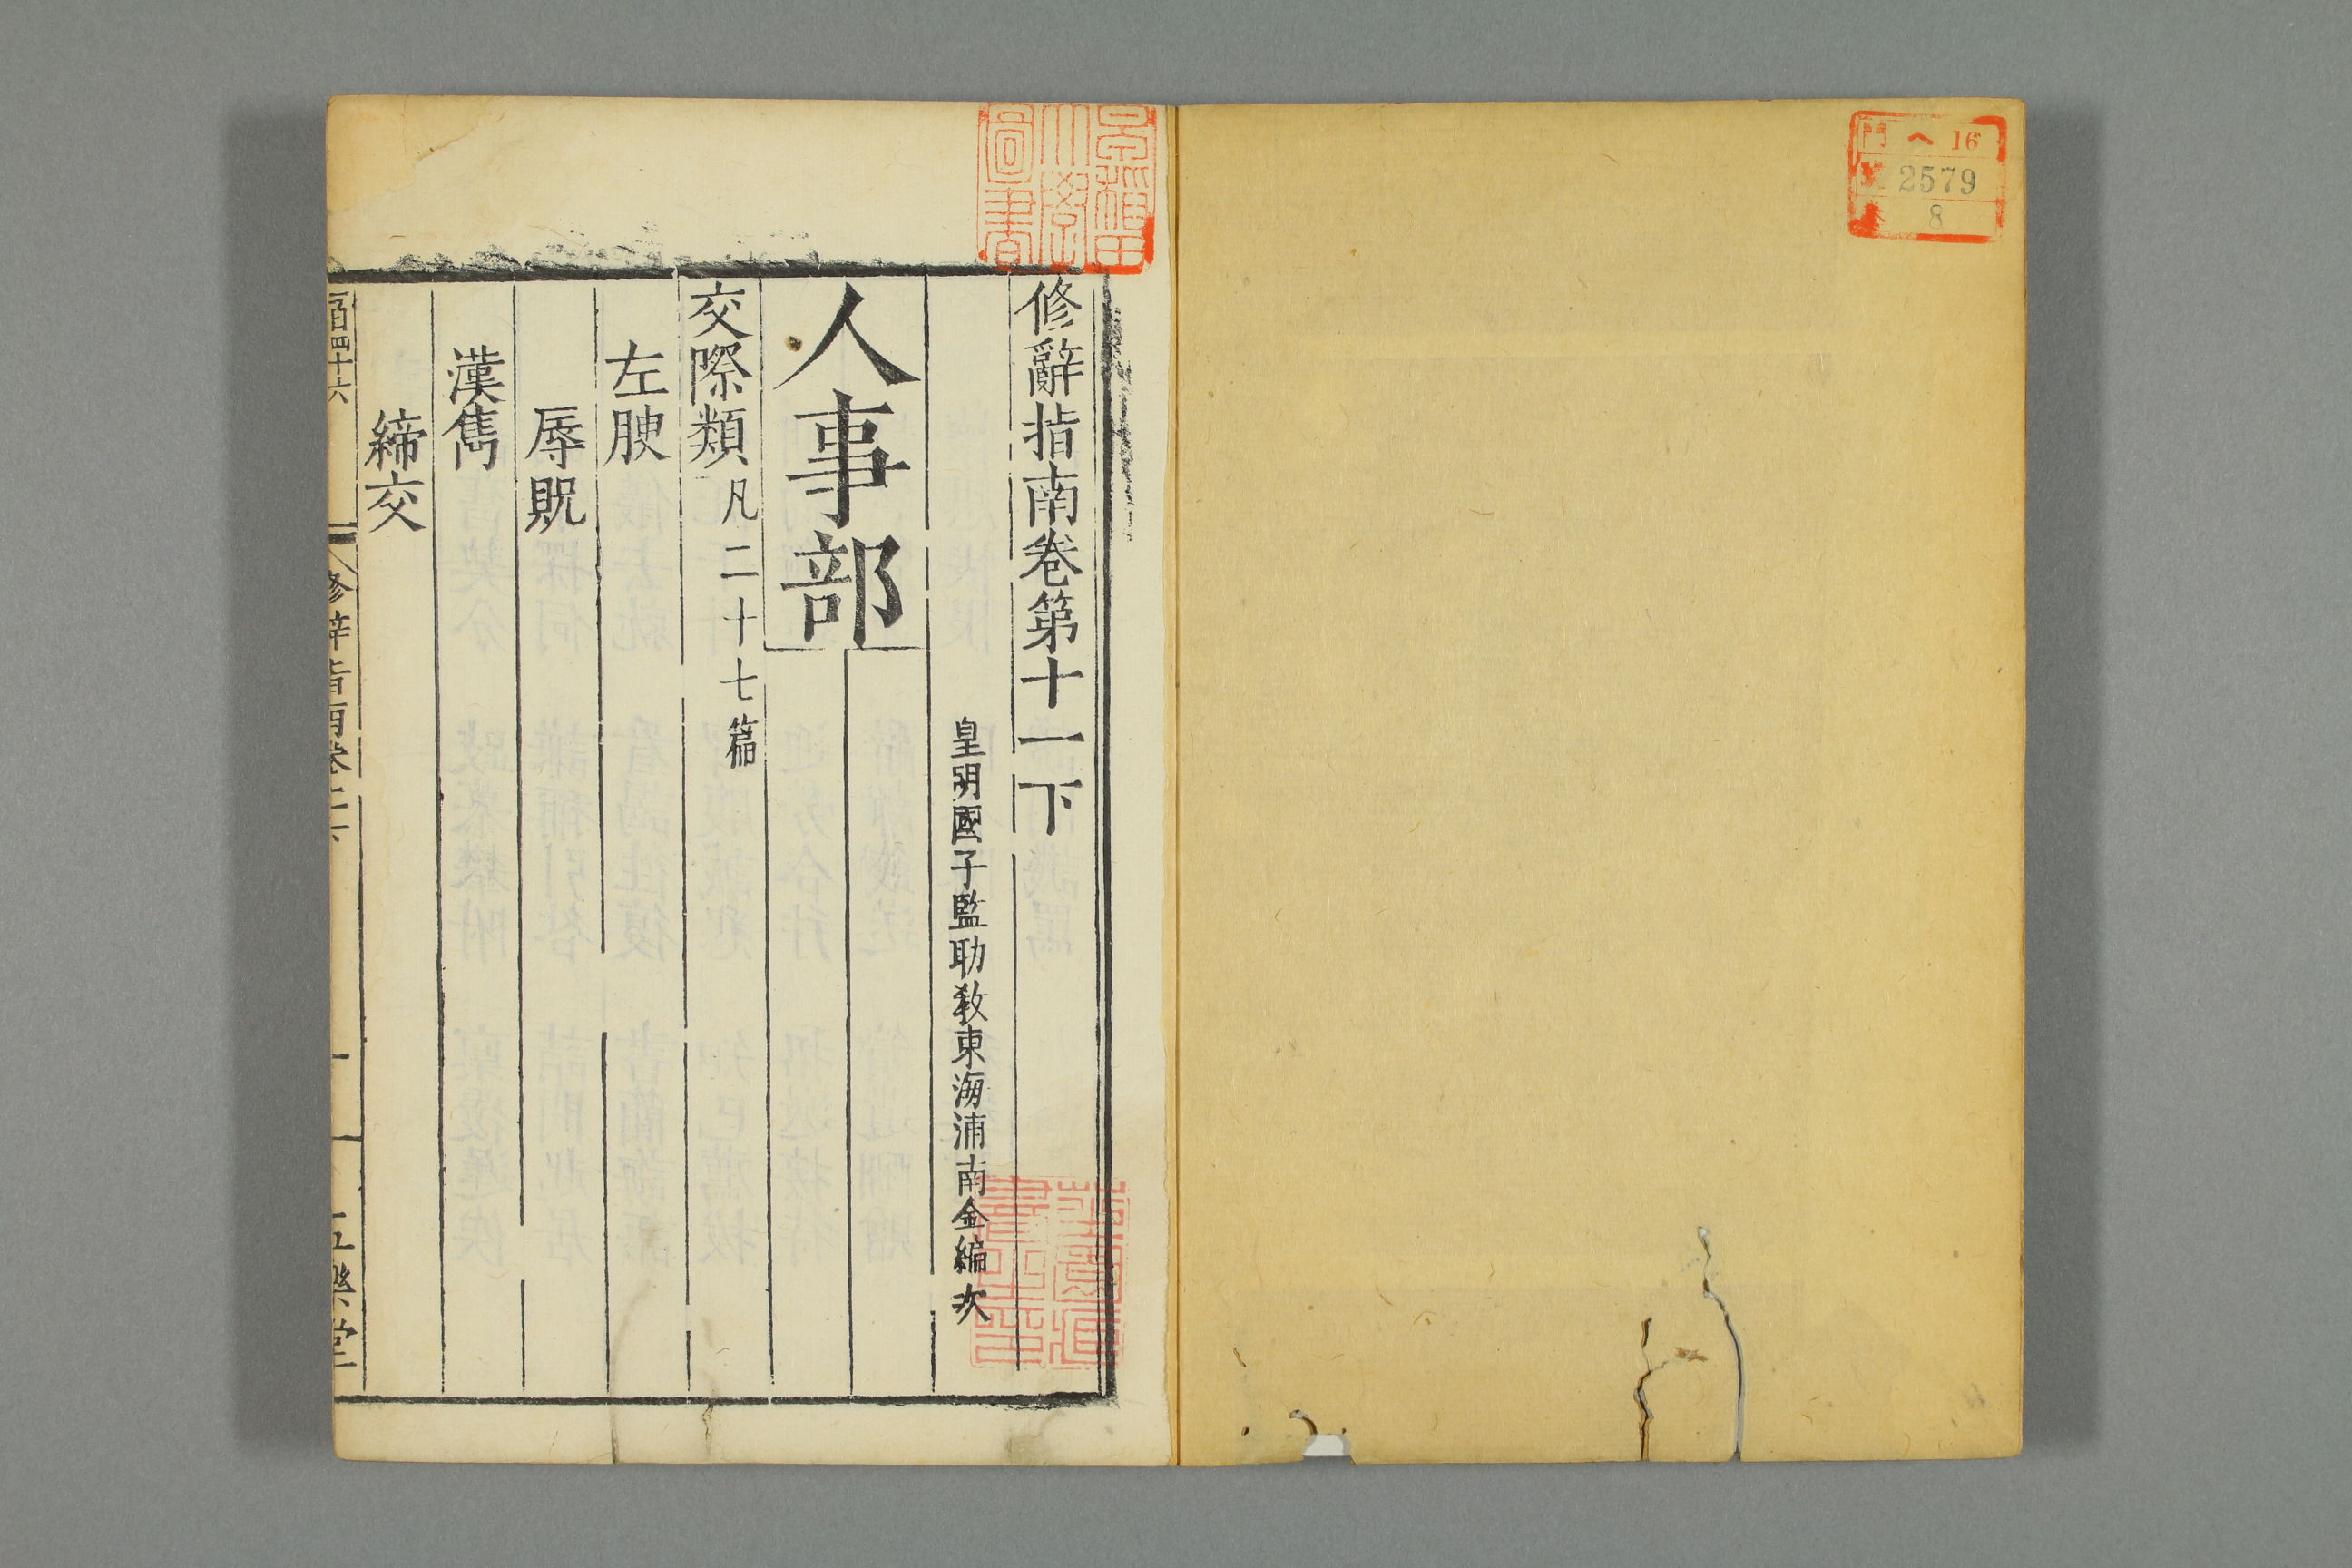 門 ヘ 16
號 2579
卷 8
早稲田
大學
圖書
修辭指南卷第十一下
皇明國子監助教東海浦南金編次
人事部
交際類 凡二十七篇
左腴
辱貺
漢雋
締交
百四十六
修辭指南卷十一下
一
五樂堂